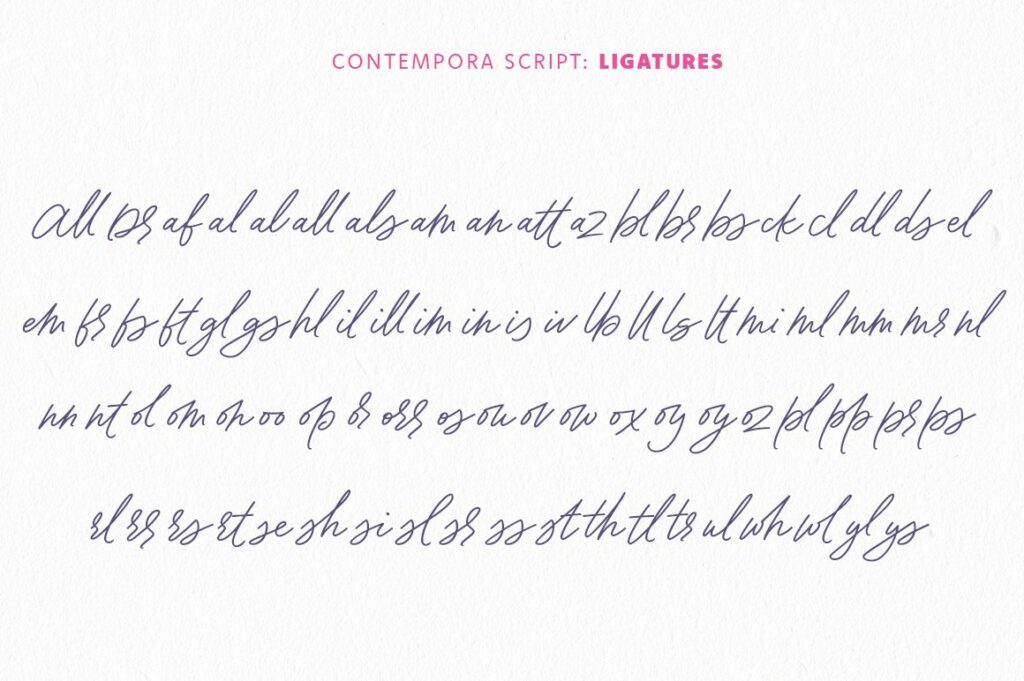 CONTEMPORA SCRIPT: LIGATURES
All Dr af al al all als am an att az bl br bs ck cl dl ds el
em fr fs ft gl gs hl il ill im in is iv lb ll ls lt mi ml mm mr nl
nn nt ol om on oo op or orr os ou ov ow ox oy oy oz pl pp pr ps
rl rr rs rt se sh si sl sr ss st th tl tr ul wh wl yl ys